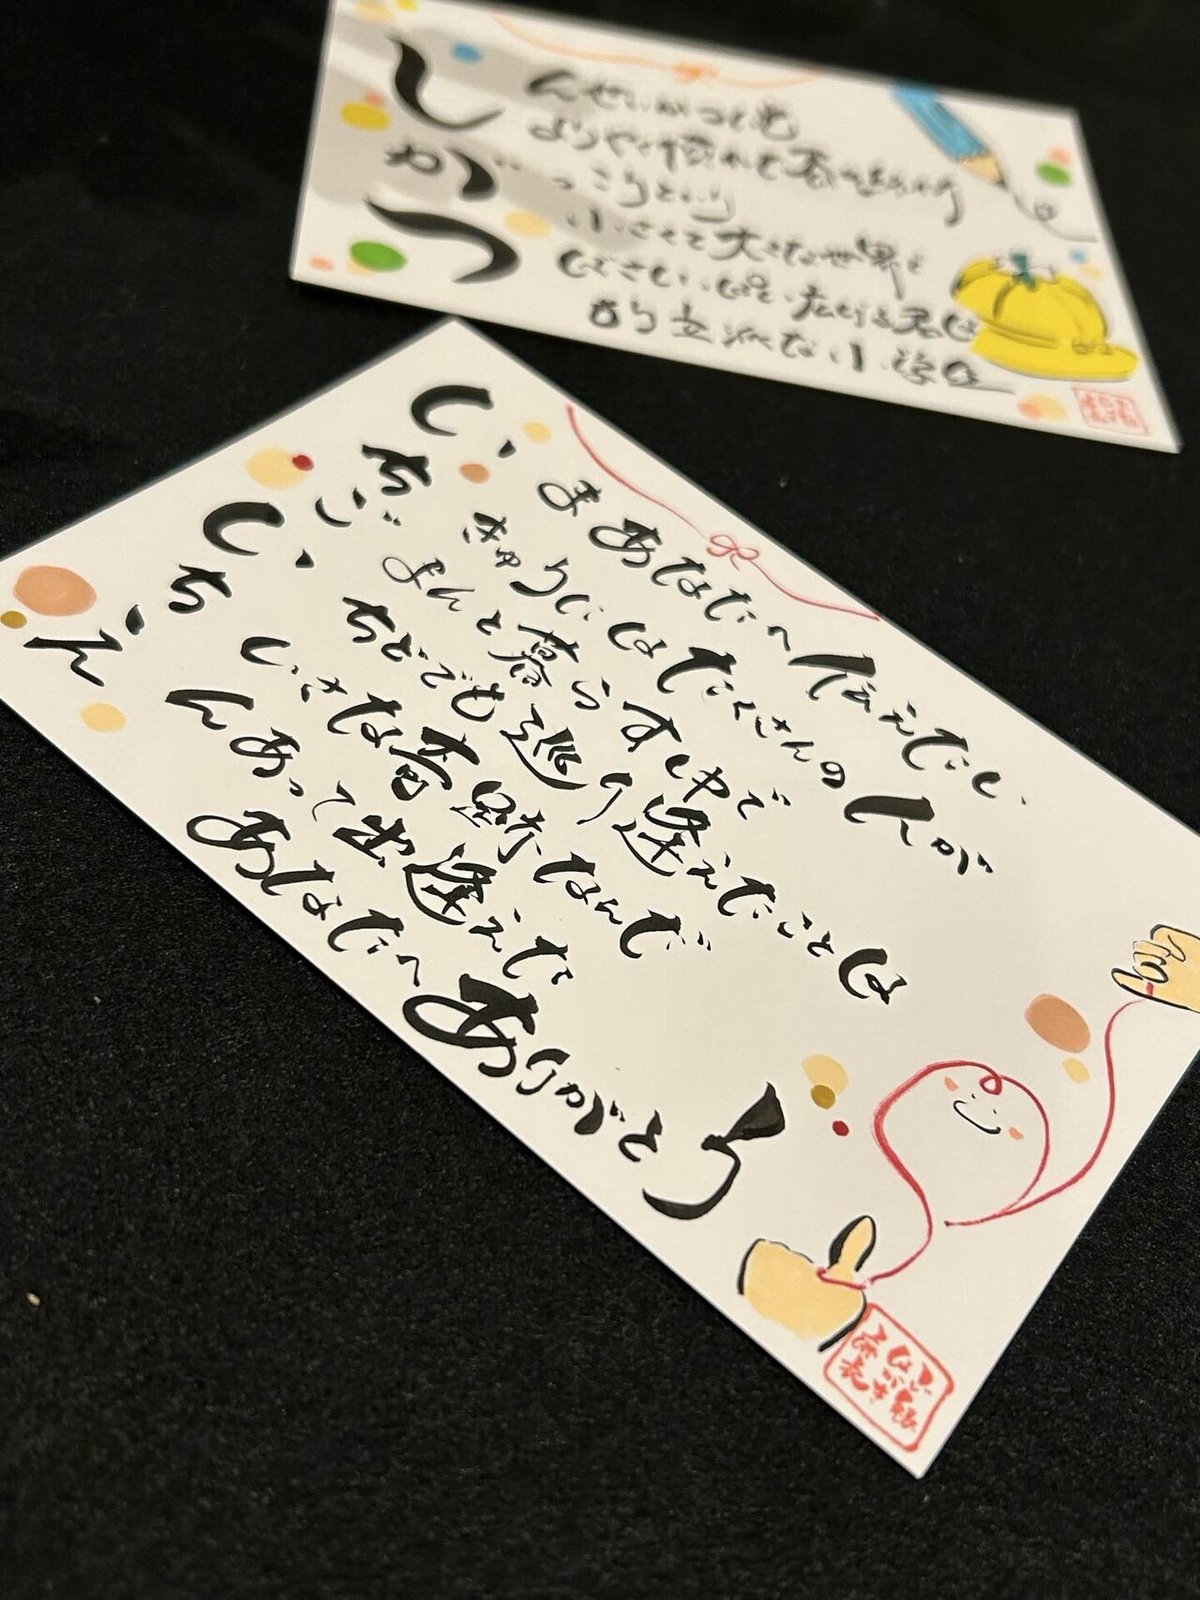 しんせいかつにも
ようやく慣れた春の終わり
がっこうという
小さくて大きな世界を
つばさいっぱい広げる君は
もう立派な小学生
いまあなたへ伝えたい
ちきゅうにはたくさんの人が
ごまんと暮らす中で
いちどでも巡り逢えたことは
ちいさな奇跡なんだ
えんあって出逢えた
あなたへありがとう